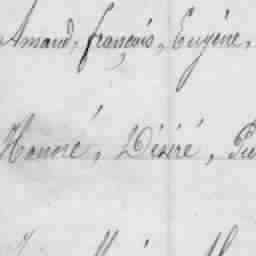 Amand, françois, Eugène,
Honoré, Désiré,